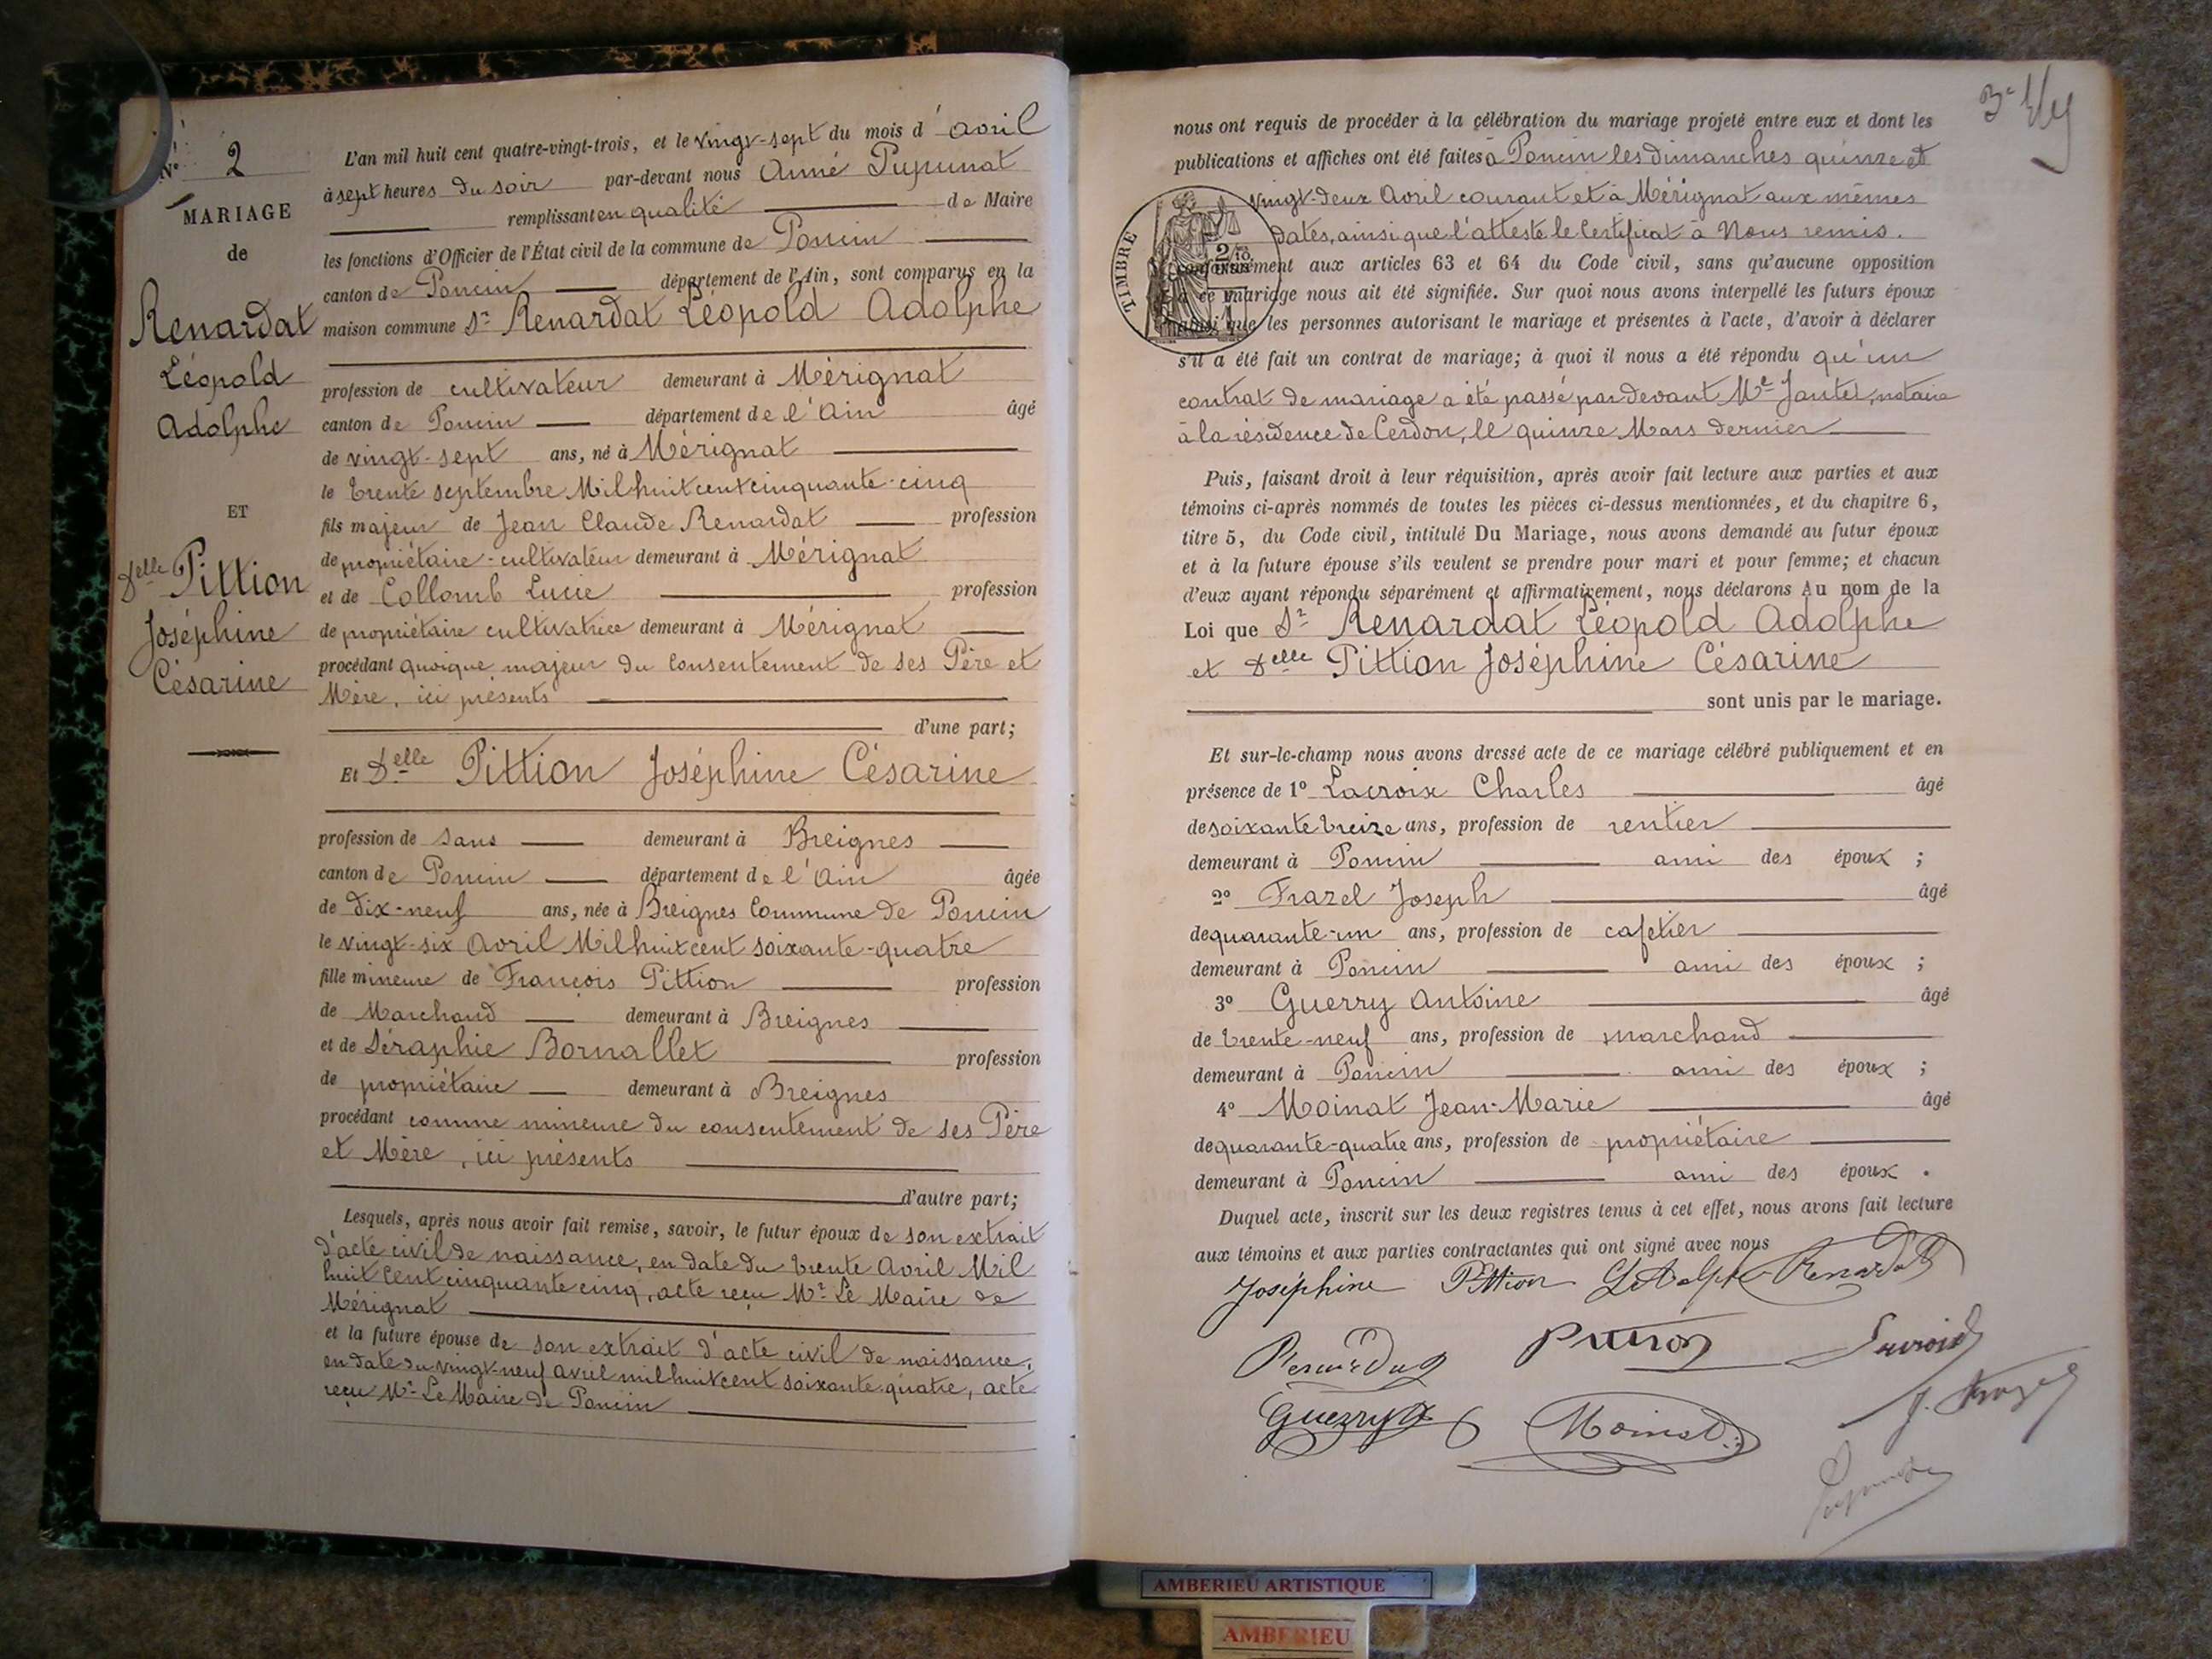 N° 2
MARIAGE
de
Renardat
Léopold
Adolphe
ET
Delle Pittion
Joséphine
Césarine
L'an mil huit cent quatre-vingt-trois, et le vingt-sept du mois d' avril
à sept heures du soir par-devant nous Aimé Pupunat
remplissant en qualité de Maire
les fonctions d'Officier de l'État civil de la commune de Poncin
canton de Poncin département de l'Ain, sont comparus en la
maison commune Sr Renardat Léopold Adolphe
profession de cultivateur demeurant à Mérignat
canton de Poncin département de l'Ain âgé
de vingt-sept ans, né à Mérignat
le trente septembre Mil huit cent cinquante-cinq
fils majeur de Jean Claude Renardat profession
de propriétaire-cultivateur demeurant à Mérignat
et de Collomb Lucie profession
de propriétaire cultivatrice demeurant à Mérignat
procédant quoique majeur du consentement de ses Père et
Mère, ici présents
d'une part;
Et Delle Pittion Joséphine Césarine
profession de sans demeurant à Breignes
canton de Poncin département de l'Ain âgée
de dix-neuf ans, née à Breignes Commune de Poncin
le vingt-six Avril Mil huit cent soixante-quatre
fille mineure de François Pittion profession
de Marchand demeurant à Breignes
et de Séraphie Bornallet profession
de propriétaire demeurant à Breignes
procédant comme mineure du consentement de ses Père
et Mère, ici présents
d'autre part;
Lesquels, après nous avoir fait remise, savoir, le futur époux de son extrait
d'acte civil de naissance, en date du trente Avril Mil
huit Cent cinquante cinq, acte reçu Mr Le Maire de
Mérignat
et la future épouse de son extrait d'acte civil de naissance,
en date du vingt-neuf avril mil huit cent soixante-quatre, acte
reçu Mr Le Maire de Poncin
nous ont requis de procéder à la célébration du mariage projeté entre eux et dont les
publications et affiches ont été faites à Poncin les dimanches quinze et
vingt-deux Avril courant et à Mérignat aux mêmes
dates, ainsi que l'atteste le Certificat à Nous remis.
TIMBRE
conformément aux articles 63 et 64 du Code civil, sans qu'aucune opposition
à ce mariage nous ait été signifiée. Sur quoi nous avons interpellé les futurs époux
ainsi que les personnes autorisant le mariage et présentes à l'acte, d'avoir à déclarer
s'il a été fait un contrat de mariage; à quoi il nous a été répondu qu'un
contrat de mariage a été passé par devant Me Jantet, notaire
à la résidence de Cerdon, le quinze Mars dernier
Puis, faisant droit à leur réquisition, après avoir fait lecture aux parties et aux
témoins ci-après nommés de toutes les pièces ci-dessus mentionnées, et du chapitre 6,
titre 5, du Code civil, intitulé Du Mariage, nous avons demandé au futur époux
et à la future épouse s'ils veulent se prendre pour mari et pour femme; et chacun
d'eux ayant répondu séparément et affirmativement, nous déclarons Au nom de la
Loi que Sr Renardat Léopold Adolphe
et Delle Pittion Joséphine Césarine
sont unis par le mariage.
Et sur-le-champ nous avons dressé acte de ce mariage célébré publiquement et en
présence de 1° Lacroix Charles âgé
de soixante treize ans, profession de rentier
demeurant à Poncin ami des époux ;
2° Frazel Joseph âgé
de quarante-un ans, profession de cafetier
demeurant à Poncin ami des époux ;
3° Guerry Antoine âgé
de trente-neuf ans, profession de marchand
demeurant à Poncin ami des époux ;
4° Moinat Jean-Marie âgé
de quarante-quatre ans, profession de propriétaire
demeurant à Poncin ami des époux .
Duquel acte, inscrit sur les deux registres tenus à cet effet, nous avons fait lecture
aux témoins et aux parties contractantes qui ont signé avec nous
Joséphine Pittion Renardat
Pittion Lacroix
Guerry Moinat J. Frazel
AMBERIEU ARTISTIQUE
AMBERIEU